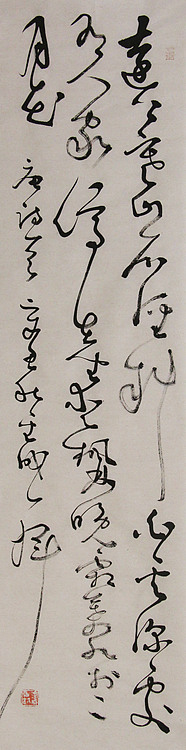 遠上寒山石徑斜白雲深處
有人家停車坐愛楓林晚霜葉紅於二
月花 唐詩一首